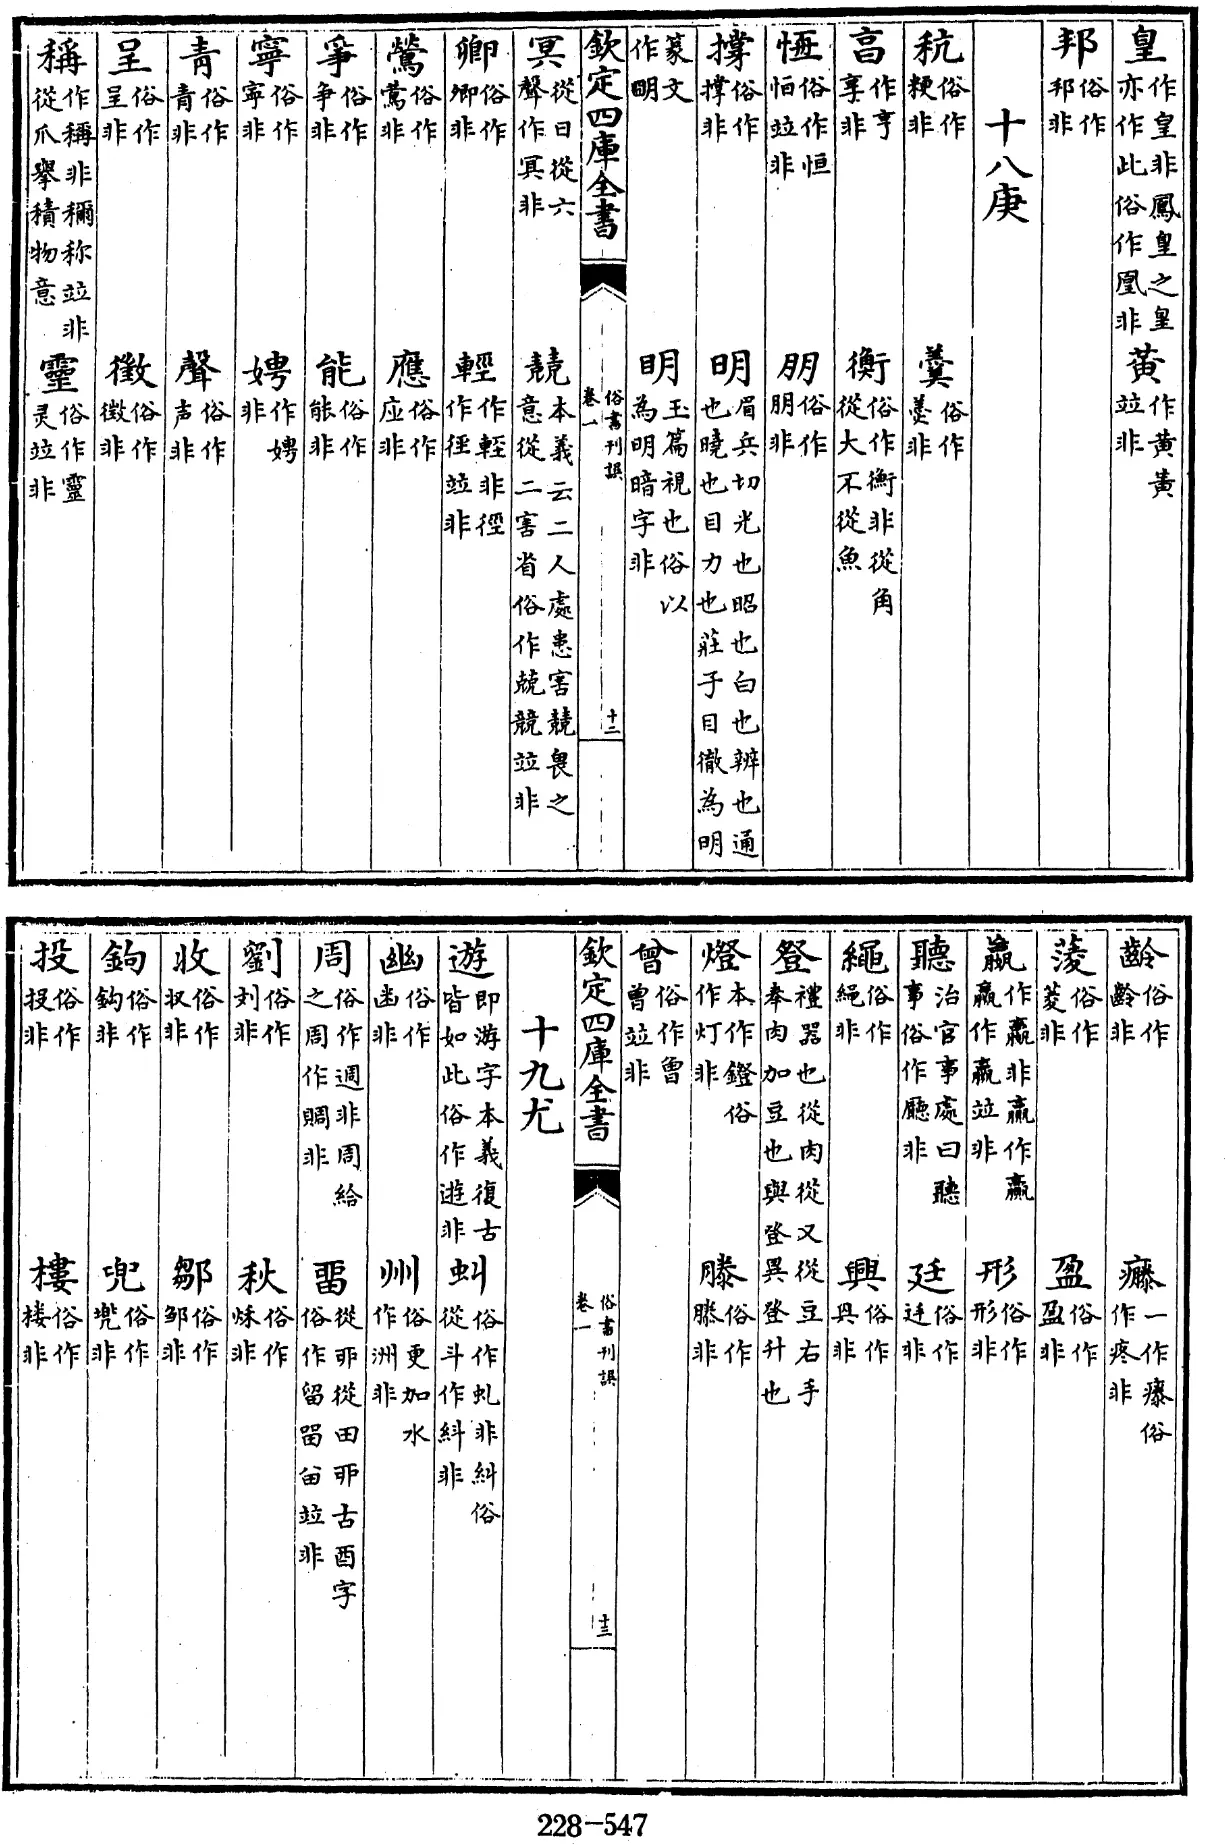 皇作皇非鳳皇之皇亦作此俗作凰非 黃作黄黃竝非
邦俗作邦非
十八庚
秔俗作粳非 羹俗作羮非
亯作亨享非 衡俗作衡非從角從大不從魚
恆俗作恒怕竝非 朋俗作朋非
撐俗作撑非 明眉兵切光也昭也白也辨也通也曉也目力也莊子目徹為明
篆文作朙 明玉篇視也俗以為明暗字非
欽定四庫全書 俗書刊誤 卷一 十二
冥從日從六聲作冥非 競本義云二人處患害競畏之意從二害省俗作兢競竝非
卿俗作卿非 輕作輕非徑作徑竝非
鶯俗作鶯非 應俗作应非
爭俗作争非 能俗作能非
寧俗作寧非 娉作娉非
靑俗作青非 聲俗作声非
呈俗作呈非 徵俗作徴非
稱作稱非稱称竝非從爪舉積物意 靈俗作靈灵竝非
齡俗作齡非 癓一作瘝俗作疼非
蔆俗作菱非 盈俗作盈非
贏作贏非贏作贏贏作贏竝非 形俗作形非
聽治官事處曰聽事俗作廳非 廷俗作廷非
繩俗作繩非 興俗作兴非
登禮器也從肉從又從豆右手奉肉加豆也與登異登升也
燈本作鐙俗作灯非 滕俗作滕非
曾俗作曽曾竝非
欽定四庫全書 俗書刊誤 卷一 十三
十九尤
遊即游字本義復古皆如此俗作遊非 虯俗作虬非糾俗從斗作紏非
幽俗作凼非 州俗更加水作洲非
周俗作週非周給之周作賙非 畱從丣從田丣古酉字俗作留畱畄竝非
劉俗作刘非 秋俗作秌非
收俗作収非 鄒俗作邹非
鉤俗作鈎非 兜俗作兠非
投俗作投非 樓俗作楼非
228-547